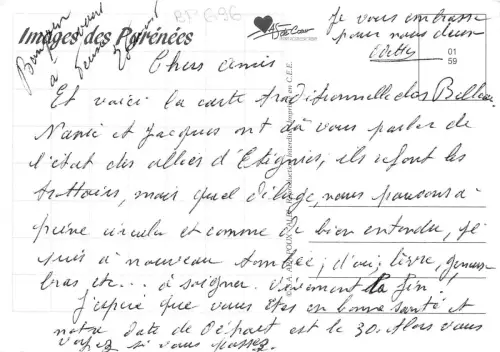 Images des Pyrénées
As de Coeur
01
59
Je vous embrasse
pour nous deux
Chers amis
Et voici la carte traditionnelle des
Nanie et Jacques ont dû vous parler de
l'état des allées d'Etignies, ils refont les
trottoirs, mais quel déluge, nous pouvons à
peine circuler et comme de bien entendu, je
suis à nouveau tombée; d'où; lèvre, genoux
bras etc... à soigner. Vivement la fin!
J'espère que vous êtes en bonne santé et
notre date de départ est le 30. Alors vous
voyez si vous passez.